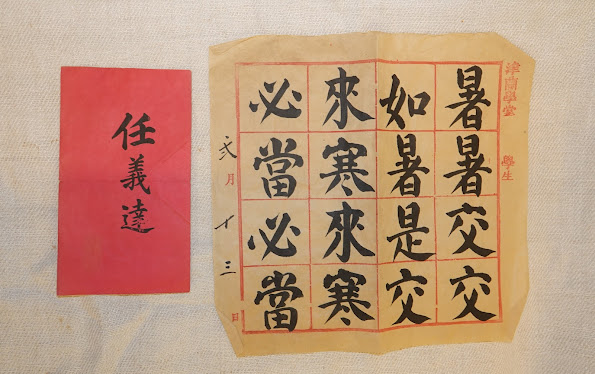 津南學堂 學生
暑暑交交
如暑是交
來寒來寒
必當必當
弍月十三日
任義達